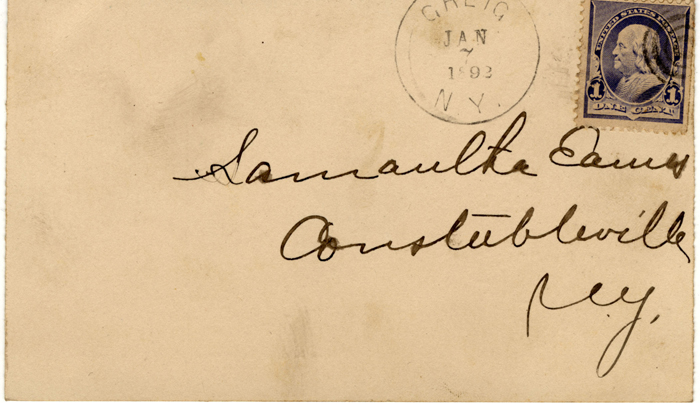 GREIG
JAN
7
1892
N.Y.
UNITED STATES POSTAGE
1 1
ONE CENT
Samantha Eames
Constableville
N.Y.